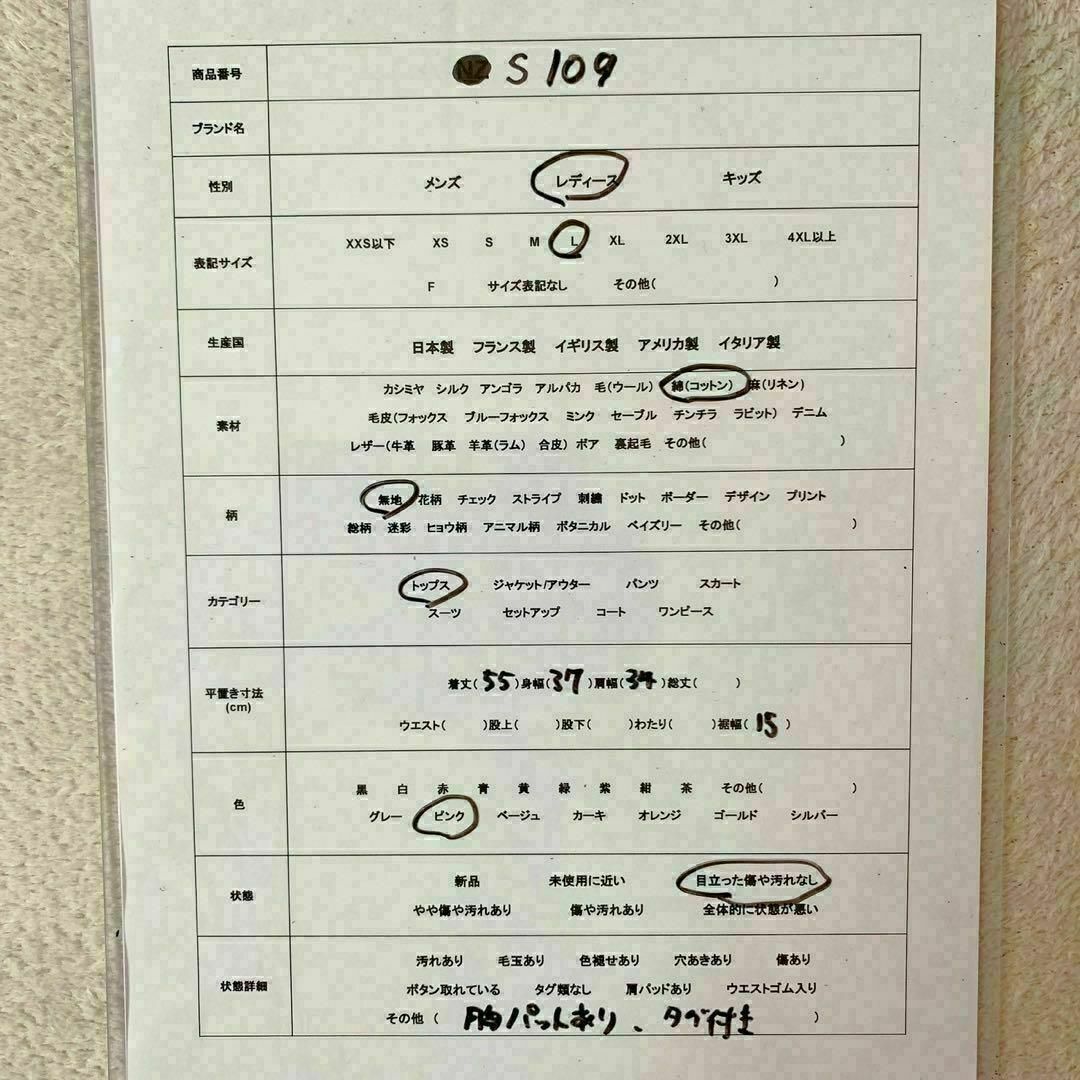 商品番号 NZ S 109
ブランド名
性別 メンズ レディース キッズ
XXS以下 XS S M L XL 2XL 3XL 4XL以上
表記サイズ
F サイズ表記なし その他( )
生産国 日本製 フランス製 イギリス製 アメリカ製 イタリア製
カシミヤ シルク アンゴラ アルパカ 毛(ウール) 綿(コットン) 麻(リネン)
素材 毛皮(フォックス ブルーフォックス ミンク セーブル チンチラ ラビット) デニム
レザー(牛革 豚革 羊革(ラム) 合皮) ボア 裏起毛 その他( )
無地 花柄 チェック ストライプ 刺繍 ドット ボーダー デザイン プリント
柄
総柄 迷彩 ヒョウ柄 アニマル柄 ボタニカル ペイズリー その他( )
トップス ジャケット/アウター パンツ スカート
カテゴリー
スーツ セットアップ コート ワンピース
着丈(55)身幅(37)肩幅(34)総丈( )
平置き寸法
(cm)
ウエスト( )股上( )股下( )わたり( )裾幅(15)
黒 白 赤 青 黄 緑 紫 紺 茶 その他( )
色
グレー ピンク ベージュ カーキ オレンジ ゴールド シルバー
新品 未使用に近い 目立った傷や汚れなし
状態
やや傷や汚れあり 傷や汚れあり 全体的に状態が悪い
汚れあり 毛玉あり 色褪せあり 穴あきあり 傷あり
状態詳細 ボタン取れている タグ類なし 肩パッドあり ウエストゴム入り
その他(胸パットあり、タグ付き)